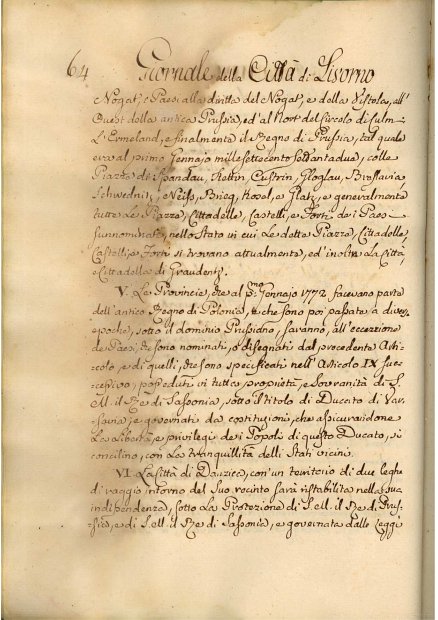 64 Giornale della Città di Livorno
Nogat, e Paesi alla diritta del Nogat, e della Vistola, all'
Ouest della antica Prussia, ed al Nort del Circolo di Culm
L'Ermeland, e finalmente il Regno di Prussia, tal quale
era al primo Gennajo millesettecento settantadue, colle
Piazze di Spandau, Stettin, Custrin, Gloglau, Breslavia,
Schwednitz, e Neiss, Brieg, Kosel, e Glatz, e generalmente
tutte le Piazze, Cittadelle, Castelli, e Forti dei Paesi
sunnominati, nello Stato in cui le dette Piazze, Cittadelle,
Castelli, e Forti si trovano attualmente, ed inoltre la Città,
e Cittadella di Graudentz.
V. Le Provincie, che al p.mo Gennajo 1772 facevano parte
dell'antico Regno di Polonia, e che sono poi passate a diverse
epoche, sotto il dominio Prussiano, saranno, all'eccezione
de Paesi, che sono nominati, o disegnati dal precedente Arti-
colo, e di quelli, che sono specificati nell'Articolo IX suc-
cessivo, possedute in tutta proprietà, e Sovranità di S.
M. il Re di Sassonia, sotto il titolo di Ducato di Var-
savia, e governati da costituzioni, che assicurandone
la libertà, e privilegi dei Popoli di questo Ducato, si
concilino, con la tranquillità delli Stati vicini.
VI. La Città di Danzica, con un territorio di due leghe
di raggio intorno del suo recinto sarà ristabilita nella sua
indipendenza, sotto la Protezione di S. M. il Re di Prus-
sia, e di S. M. il Re di Sassonia, e governata dalle Leggi